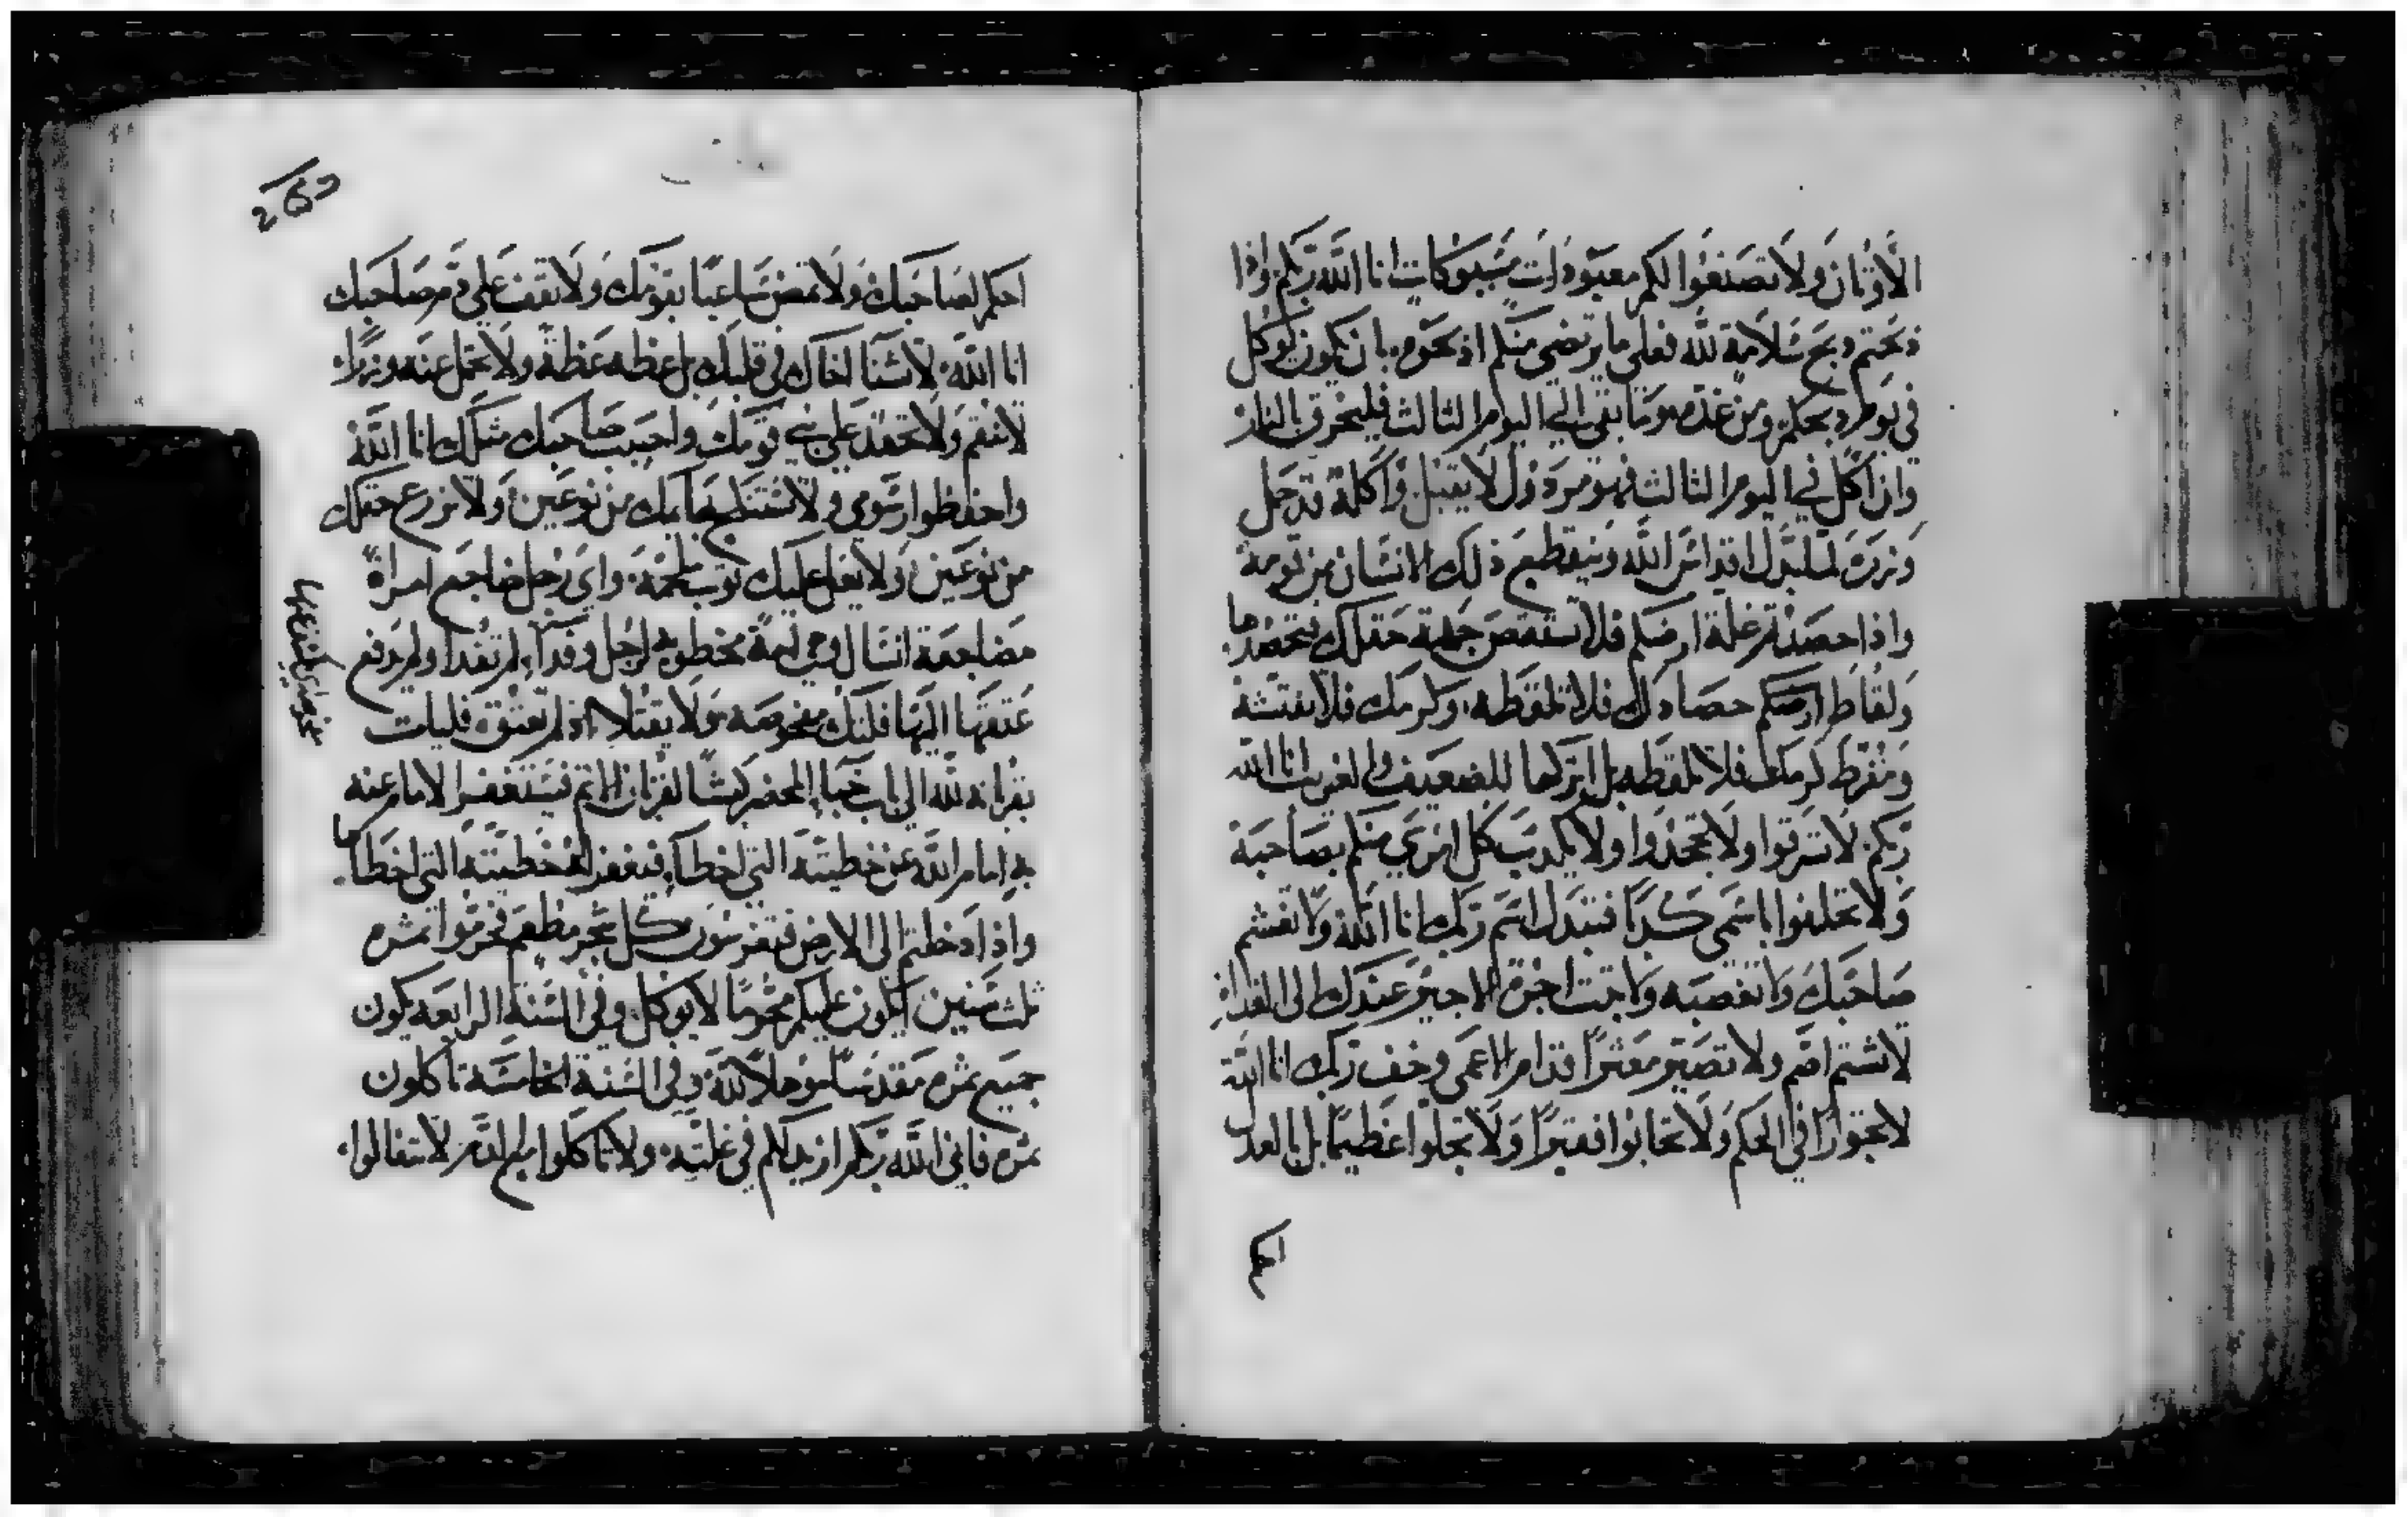 الاوثان ولا تصنعوا لكم معبودات مسبوكات انا الله ربكم واذا
ذبحتم ذبح سلامة لله فعلى ما يرتضى منكم اذبحوه بان يكون يوكل
في يوم ذبحكم ومن غده وما بقي الى اليوم الثالث فليحرق بالنار
وان اكل في اليوم الثالث فهو مرذول لا يقبل واكله قد حمل
وزره لما بدل اقداس الله وينقطع ذلك الانسان من قومه
واذا حصدتم غلة ارضكم فلا تستقص جهة حقلك فتحصدها
ولقاط ارضكم حصادك فلا تلقطه وكرمك فلا تفتشه
ومنفرط كرمك فلا تلقطه بل اتركها للضعيف والغريب انا الله
ربكم لا تسرقوا ولا تجحدوا ولا يكذب كل امرى منكم بصاحبه
ولا تحلفوا باسمي كذبا فتبدل اسم ربك انا الله ولا تغشم
صاحبك ولا تغصبه ولا تبت اجرة الاجير عندك الى الغداة
لا تشتم اصم ولا تصير معثرا قدام الاعمى وخف ربك انا الله
لا تجوروا في الحكم ولا تحابوا فقيرا ولا تجلوا عظيما بل بالعدل
احكم
احكم لصاحبك ولا تمض ساعيا بقومك ولا تقف على دم صاحبك
انا الله لا تشنا اخاك في قلبك بل عظه عظة ولا تحمل عنه وزرا
لا تنقم ولا تحقد على بني قومك واحبب صاحبك مثلك انا الله
واحفظوا رسومي ولا تستنتج بهايمك من نوعين ولا تزرع حقلك
من نوعين ولا يعل عليك ثوب ملحمة واي رجل ضاجع امراة
مضاجعة انسال وهي امة مخطوبة لرجل وفداء لم تفدا ولم يدفع
عتقها اليها فلتك مفحوصة ولا يقتلا اذ لم تعتق فليات
بقربانه لله الى باب خباء المحضر كبشا لقربان الاثم فيستغفر الامام عنه
به امام الله عن خطيته التي اخطا فيغفر له خطيته التي اخطاها
واذا دخلتم الى الارض فتغرسون كل شجر مطعم فحرموا ثمره
ثلث سنين يكون عليكم محرما لا يوكل وفي السنة الرابعه يكون
جميع ثمره مقدسا لله وفي السنة الخامسة تاكلون
ثمره فاني الله ربكم ازيدكم في غلته ولا تاكلوا مع الدم لا تتفالوا